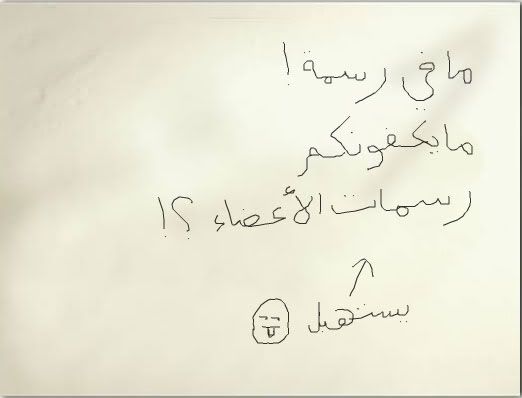 مافي رسمة !
مايكفونكم
رسمات الأعضاء ؟!
يستهبل